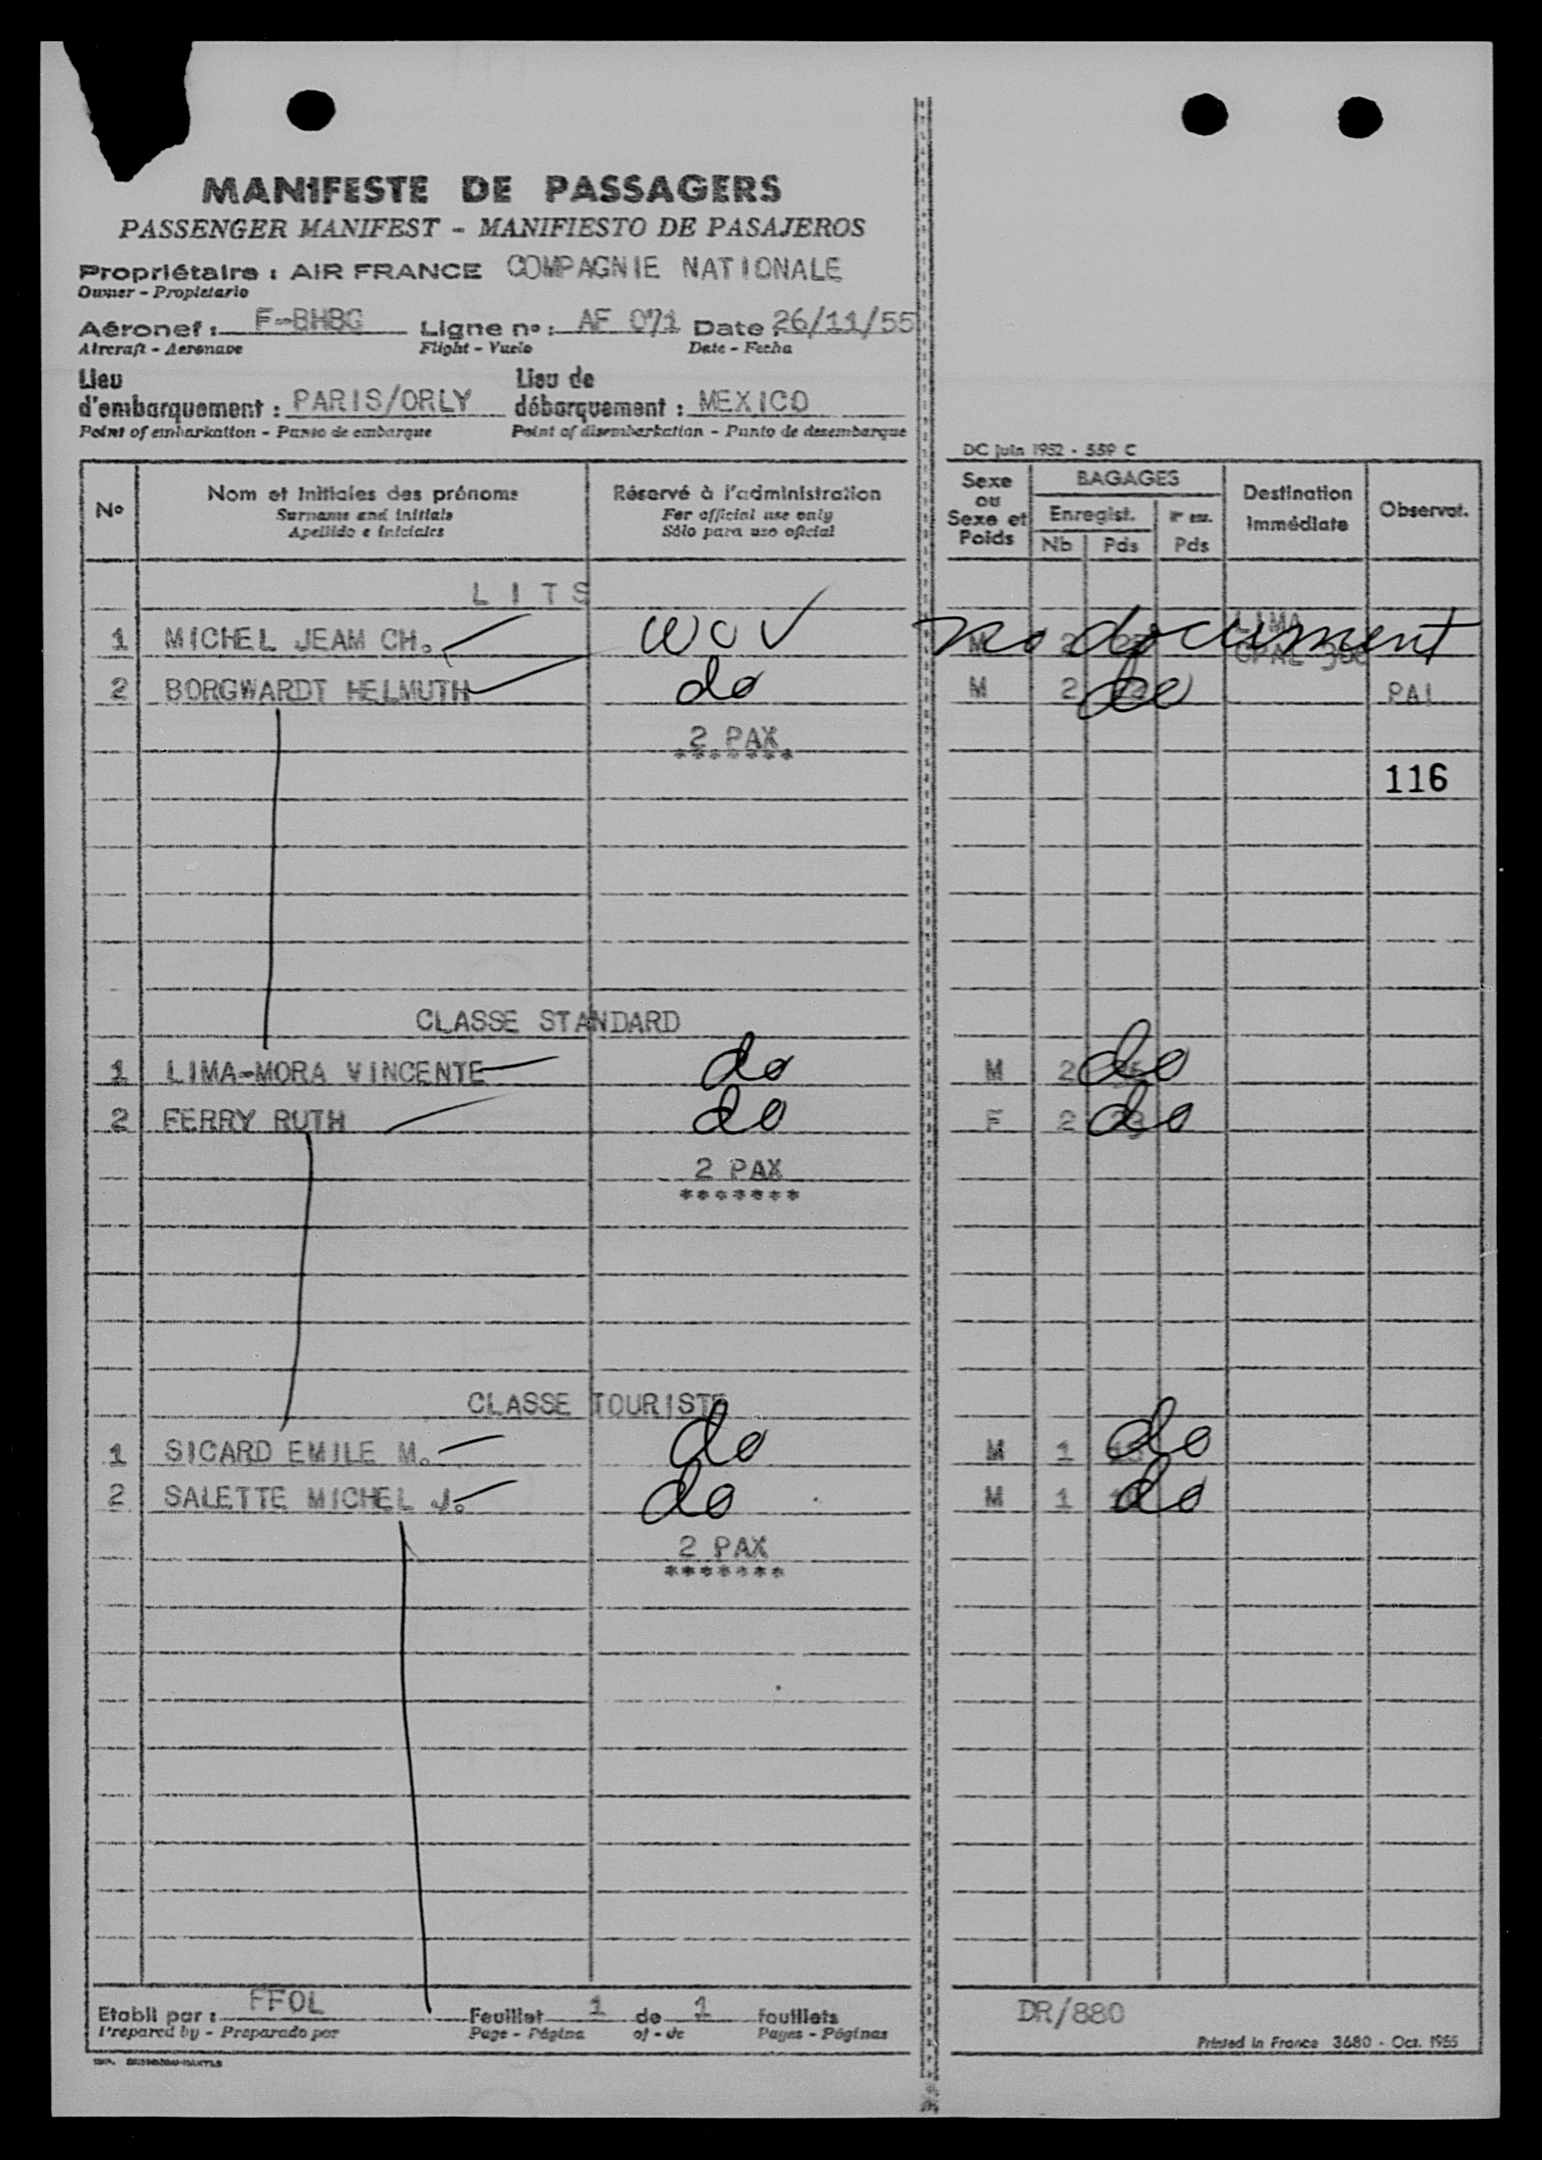 MANIFESTE DE PASSAGERS
PASSENGER MANIFEST - MANIFIESTO DE PASAJEROS
Propriétaire : AIR FRANCE COMPAGNIE NATIONALE
Owner - Propietario
Aéronef : F-BHBG Ligne n° : AF 071 Date : 26/11/55
Aircraft - Aeronave Flight - Vuelo Date - Fecha
Lieu d'embarquement : PARIS/ORLY Lieu de débarquement : MEXICO
Point of embarkation - Punto de embarque Point of disembarkation - Punto de desembarque
DC juin 1952 - 559 C
N° Nom et Initiales des prénoms Réservé à l'administration Sexe ou Sexe et Poids BAGAGES Destination Immédiate Observat.
Surname and initials For official use only Enregist.
Apellido e iniciales Sólo para uso oficial Nb Pds Pds
L I T S
1 MICHEL JEAM CH. WOV M 2 no document LIMA
2 BORGWARDT HELMUTH do M 2 do PAI
2 PAX
*******
116
CLASSE STANDARD
1 LIMA-MORA VINCENTE do M 2 do
2 FERRY RUTH do F 2 do
2 PAX
*******
CLASSE TOURISTE
1 SICARD EMILE M. do M 1 do
2 SALETTE MICHEL J. do M 1 do
2 PAX
*******
Etabli par : FFOL Feuillet 1 de 1 feuillets DR/880
Prepared by - Preparado por Page - Página of - de Pages - Páginas
Printed in France 3680 - Oct. 1955